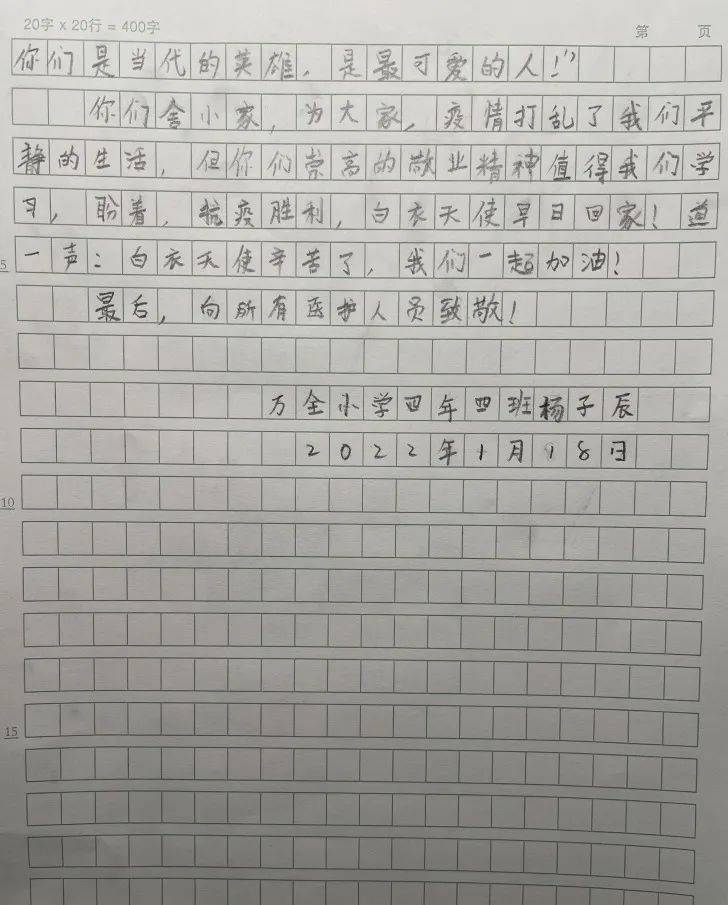 20字 x 20行 = 400字
第 页
你们是当代的英雄，是最可爱的人！”
你们舍小家，为大家，疫情打乱了我们平
静的生活，但你们崇高的敬业精神值得我们学
习，盼着，抗疫胜利，白衣天使早日回家！道
5 一声：白衣天使辛苦了，我们一起加油！
最后，向所有医护人员致敬！
万全小学四年四班杨子辰
2022年1月18日
10
15